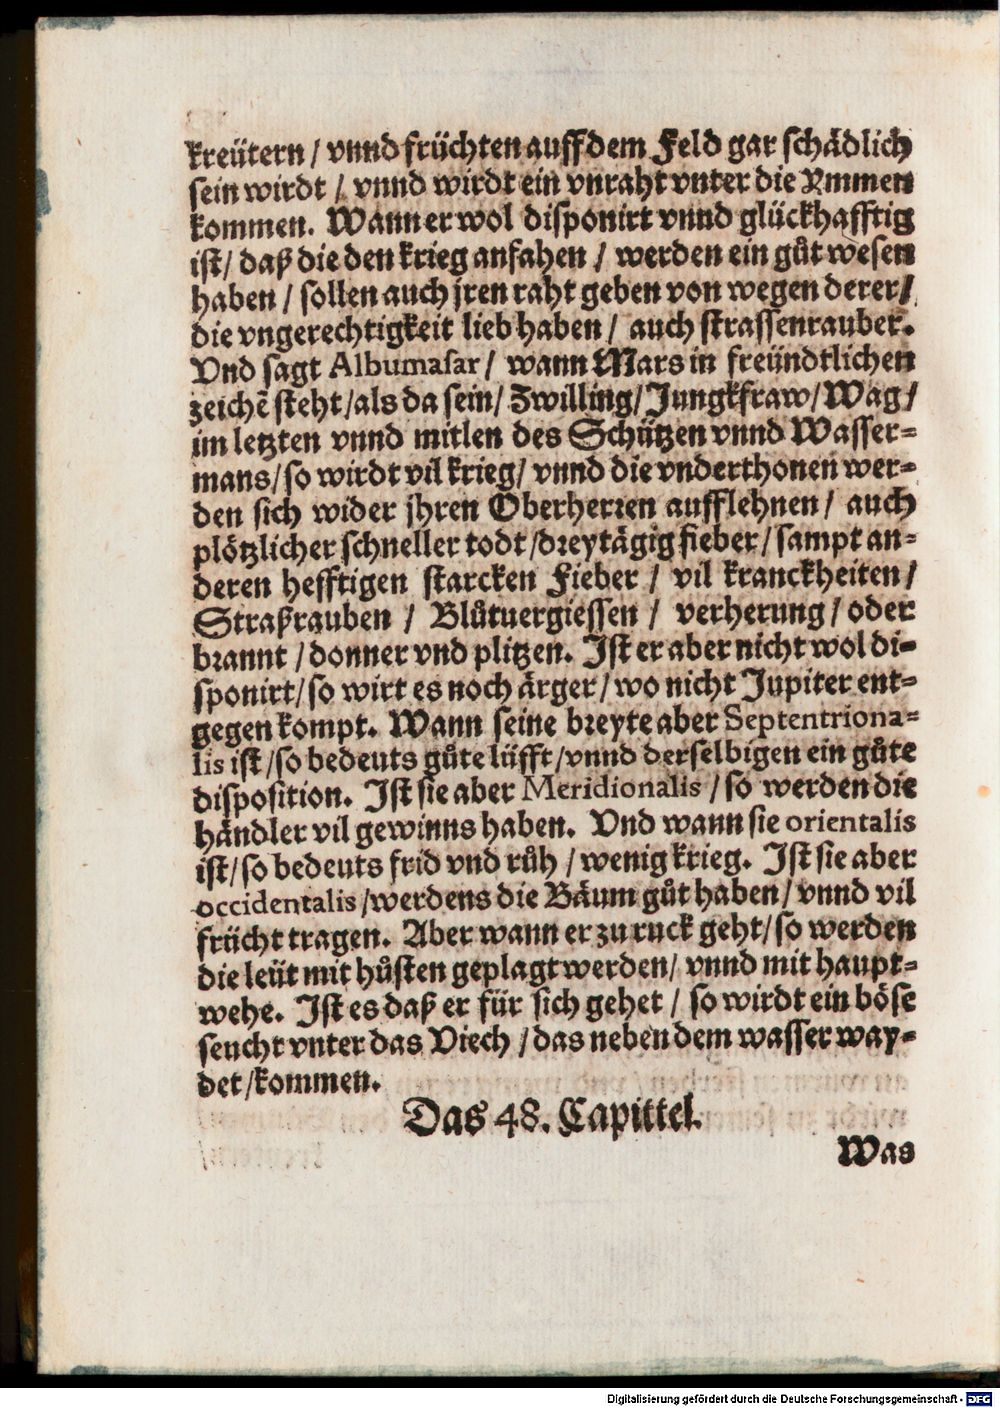 kreütern / vnnd früchten auff dem Feld gar schädlich
sein wirdt / vnnd wirdt ein vnraht vnter die Ymmen
kommen. Wann er wol disponirt vnnd glückhafftig
ist / daß die den krieg anfahen / werden ein gůt wesen
haben / sollen auch jren raht geben von wegen derer /
die vngerechtigkeit lieb haben / auch strassenrauber.
Vnd sagt Albumasar / wann Mars in freündtlichen
zeichē steht / als da sein / Zwilling / Jungkfraw / Wag /
im letzten vnnd mitlen des Schützen vnnd Wasser=
mans / so wirdt vil krieg / vnnd die vnderthonen wer=
den sich wider jhren Oberherren aufflehnen / auch
plötzlicher schneller todt / dreytägig fieber / sampt an=
deren hefftigen starcken Fieber / vil kranckheiten /
Straßrauben / Blůtuergiessen / verherung / oder
brannt / donner vnd plitzen. Ist er aber nicht wol di=
sponirt / so wirt es noch ärger / wo nicht Jupiter ent=
gegen kompt. Wann seine breyte aber Septentriona=
lis ist / so bedeuts gůte lüfft / vnnd derselbigen ein gůte
disposition. Ist sie aber Meridionalis / so werden die
händler vil gewinns haben. Vnd wann sie orientalis
ist / so bedeuts frid vnd růh / wenig krieg. Ist sie aber
occidentalis / werdens die Bäum gůt haben / vnnd vil
frücht tragen. Aber wann er zu ruck geht / so werden
die leüt mit hůsten geplagt werden / vnnd mit haupt=
wehe. Ist es daß er für sich gehet / so wirdt ein böse
seucht vnter das Viech / das neben dem wasser way=
det / kommen.
Das 48. Capittel.
Was
Digitalisierung gefördert durch die Deutsche Forschungsgemeinschaft - DFG